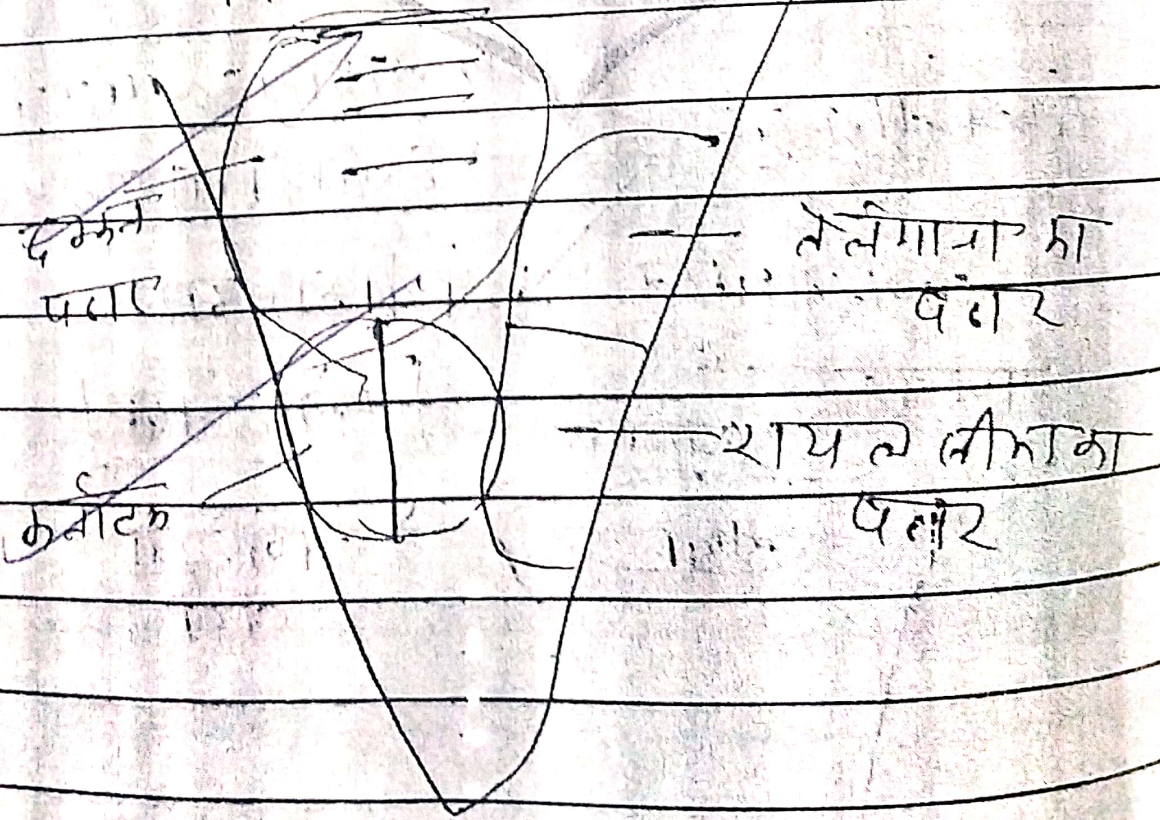 दक्कन
पठार
तेलंगाना का
पठार
रायल सीमा का
पठार
कर्नाटक